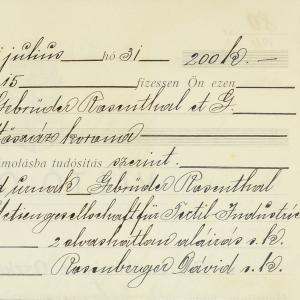 július hó 31 200 k. —
15 fizessen Ön ezen
Gebrüder Rosenthal et G
tőszáz korona
ámolásba tudósitás szerint.
d urnak Gebrüder Rosenthal
ktiengesellschaft für Textil-Industrie
2 olvashatlan aláirás s.k.
Rosenberger Dávid s.k.